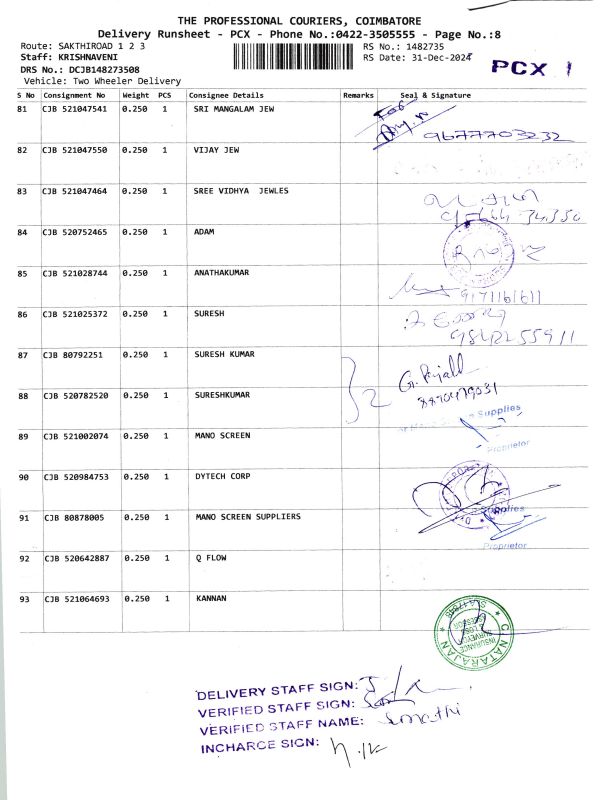 THE PROFESSIONAL COURIERS, COIMBATORE
Delivery Runsheet - PCX - Phone No.:0422-3505555 - Page No.:8
Route: SAKTHIROAD 1 2 3
RS No.: 1482735
Staff: KRISHNAVENI
RS Date: 31-Dec-2024
DRS No.: DCJB148273508
PCX 1
Vehicle: Two Wheeler Delivery
S No Consignment No Weight PCS Consignee Details Remarks Seal & Signature
81 CJB 521047541 0.250 1 SRI MANGALAM JEW
9677703232
82 CJB 521047550 0.250 1 VIJAY JEW
83 CJB 521047464 0.250 1 SREE VIDHYA JEWLES
84 CJB 520752465 0.250 1 ADAM
85 CJB 521028744 0.250 1 ANATHAKUMAR
9171161611
86 CJB 521025372 0.250 1 SURESH
87 CJB 80792251 0.250 1 SURESH KUMAR
88 CJB 520782520 0.250 1 SURESHKUMAR
2
8870479031
Supplies
89 CJB 521002074 0.250 1 MANO SCREEN
Proprietor
90 CJB 520984753 0.250 1 DYTECH CORP
91 CJB 80878005 0.250 1 MANO SCREEN SUPPLIERS
Supplies
Proprietor
92 CJB 520642887 0.250 1 Q FLOW
93 CJB 521064693 0.250 1 KANNAN
C. NATARAJAN
INSURANCE
SURVEYOR
DELIVERY STAFF SIGN:
VERIFIED STAFF SIGN:
VERIFIED STAFF NAME: Sumathi
INCHARGE SIGN: